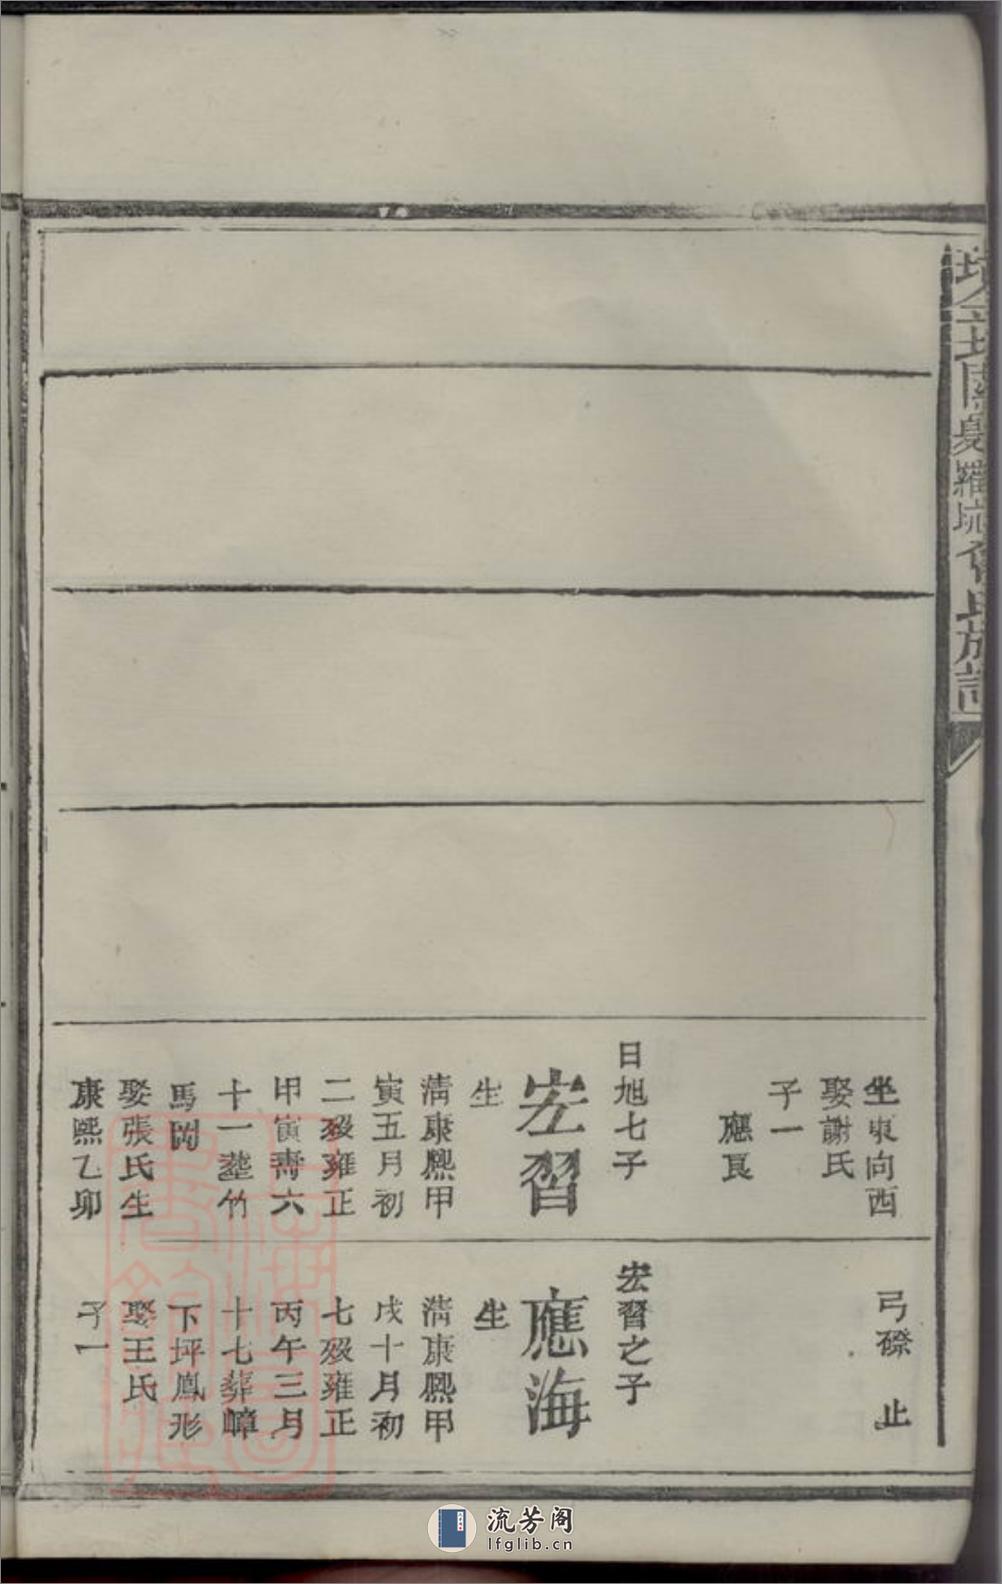 坐東向西
娶謝氏
子一
應良
日旭七子
宏習
生
清康熙甲
寅五月初
二歿雍正
甲寅壽六
十一塟竹
馬岡
娶張氏生
康熙乙卯
弓磜 止
宏習之子
應海
生
清康熙甲
戌十月初
七歿雍正
丙午三月
十七葬嶂
下坪鳳形
娶王氏
子一
流芳阁
lfglib.cn